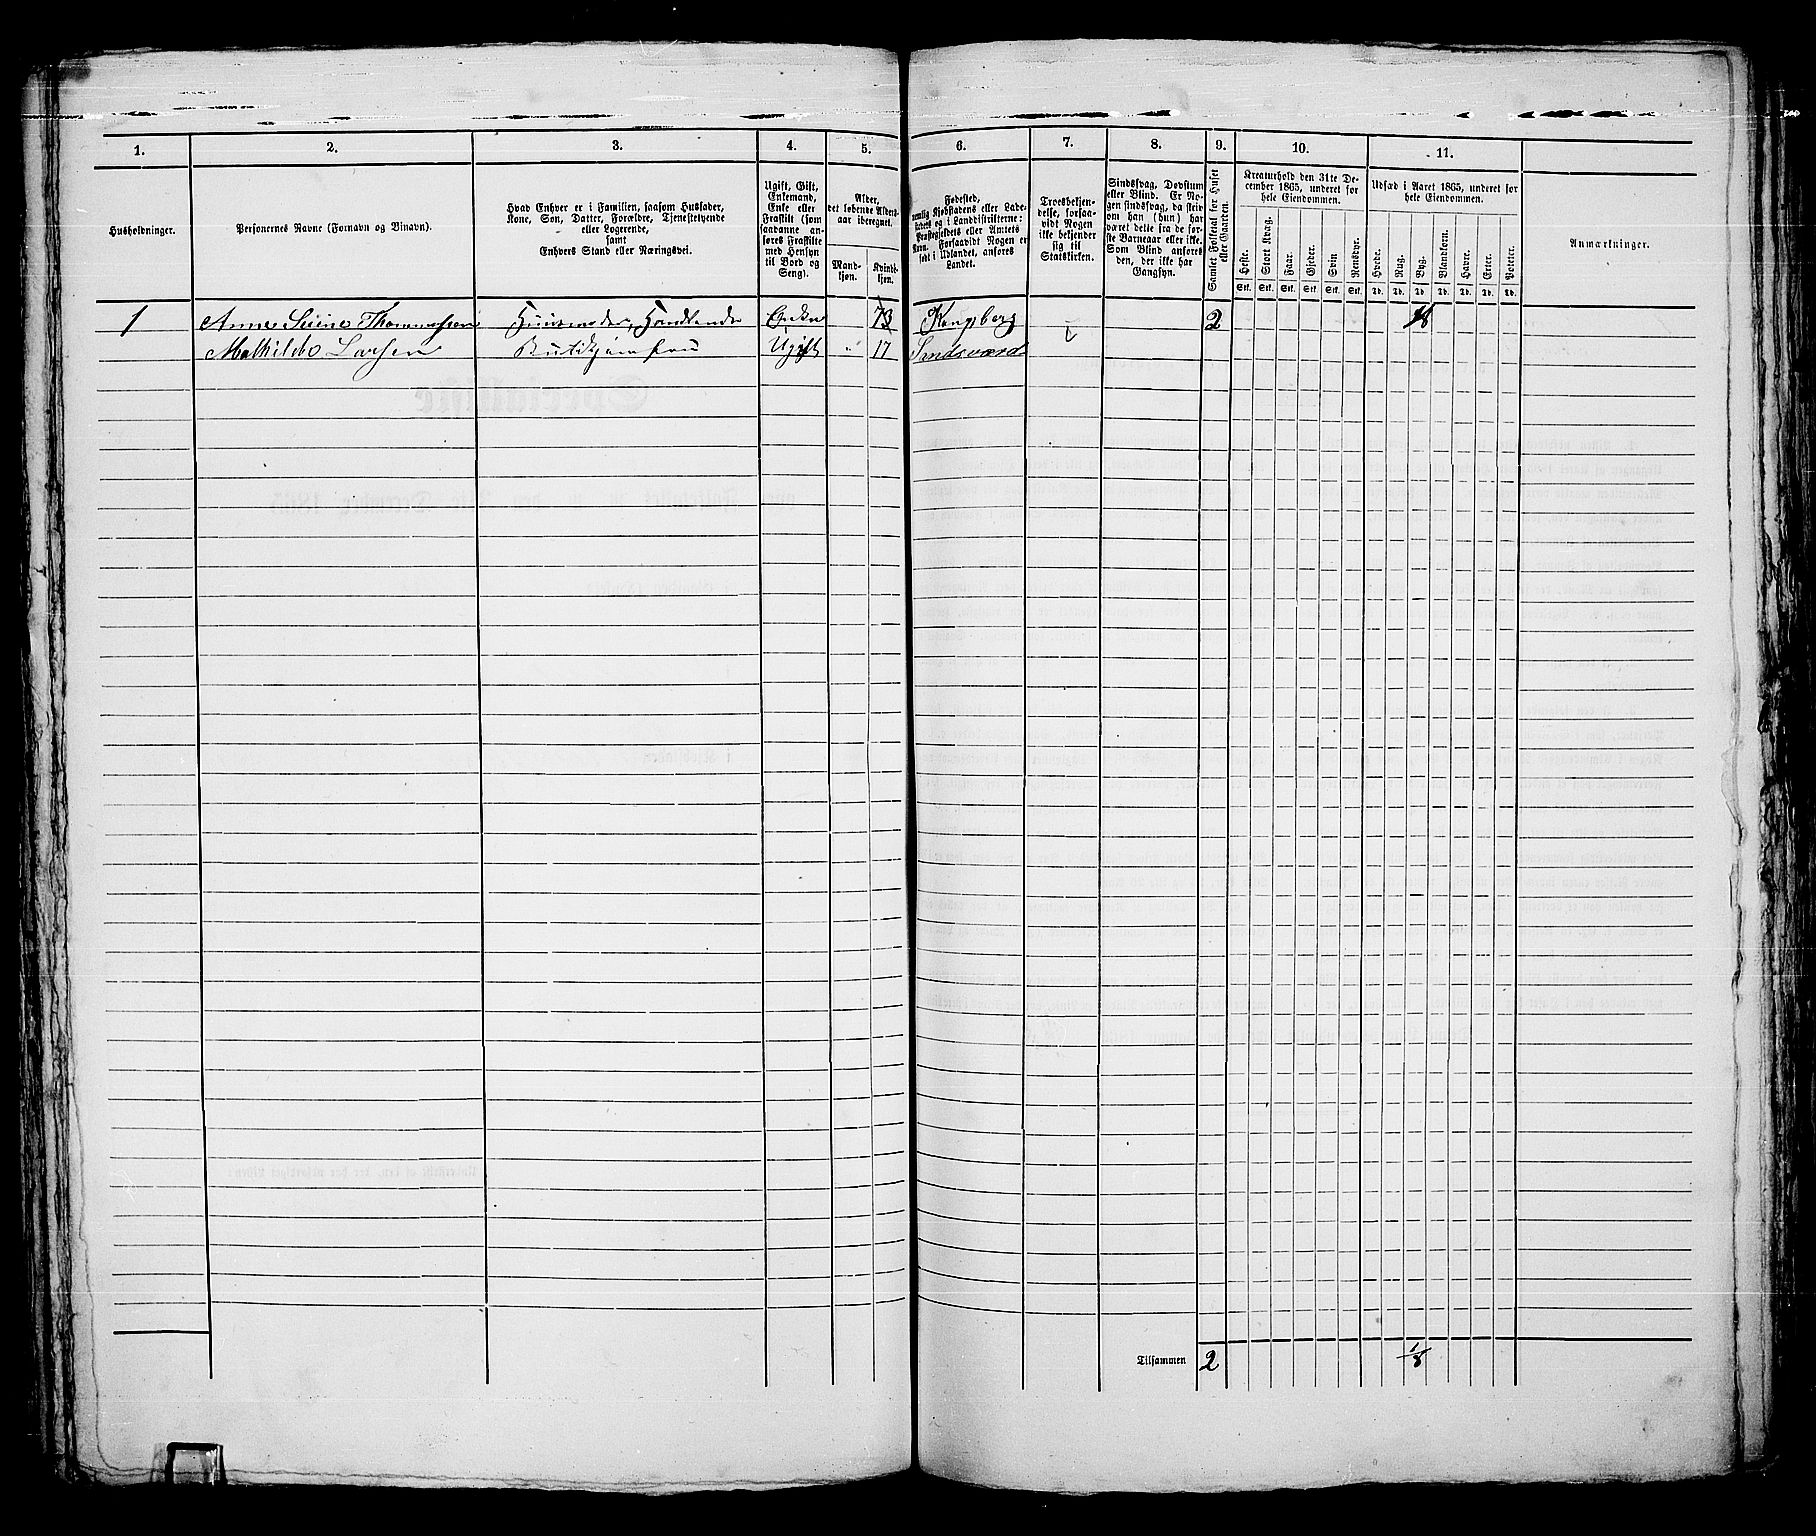 1. 2. 3. 4. 5. 6. 7. 8. 9. 10. 11.
Husholdninger.
Personernes Navne (Fornavn og Binavn).
Hvad Enhver er i Familien, saasom Husfader,
Kone, Søn, Datter, Forældre, Tjenestetyende
eller Logerende,
samt
Enhvers Stand eller Næringsvei.
Ugift, Gift,
Enkemand,
Enke eller
Fraskilt (som
saadanne an-
føres Fraskilte
med Hensyn
til Bord og
Seng).
Alder,
det løbende Alders-
aar iberegnet.
Mand-
kjøn.
Kvind-
kjøn.
Fødested,
nemlig Kjøbstadens eller Lade-
stedets og i Landdistrikterne:
Præstegjeldets eller Amtets
Navn. Forsaavidt Nogen er
født i Udlandet, anføres
Landet.
Troesbekjen-
delse, forsaa-
vidt Nogen
ikke bekjender
sig til
Statskirken.
Sindssvag, Døvstum
eller Blind. Er No-
gen sindssvag, da skriv
om han (hun) har
været dette fra de før-
ste Barneaar eller ikke.
Som Blind anføres
den, der ikke har
Gangsyn.
Samlet Folketal for Huset
eller Gaarden.
Kreaturhold den 31te De-
cember 1865, underet for
hele Eiendommen.
Heste. Stort Kvæg. Faar. Gjeder. Svin Rensdyr.
Stk. Stk. Stk. Stk. Stk. Stk.
Udsæd i Aaret 1865, underet for
hele Eiendommen.
Hvede. Rug. Byg. Blandkorn. Havre. Erter. Poteter.
Td. Td. Td. Td. Td. Td. Td.
Anmærkninger.
1 Anne Thommassen Huusmoder, Handlende Enke 73 Kongsberg 2
Mathilde Larsen Ugift " 17 Sandsværd
Tilsammen 2 1/8